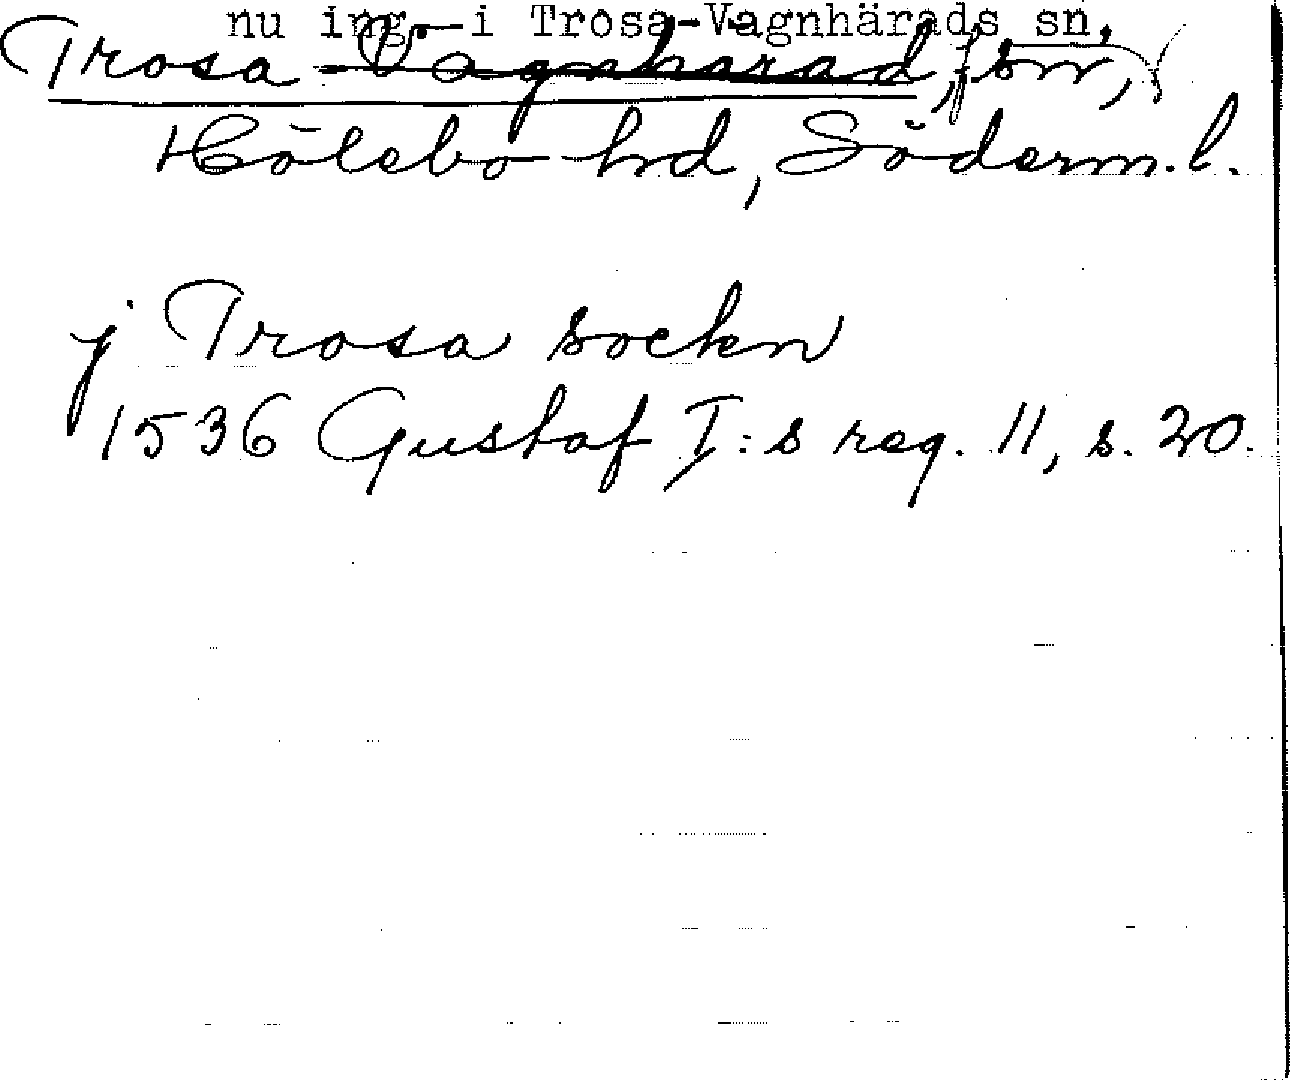 nu ing. i Trosa-Vagnhärads sn.
Trosa-Vagnhärad, sn,
Hölebo hd, Söderm. l.
j Trosa sockn
1536 Gustaf I:s reg. 11, s. 20.